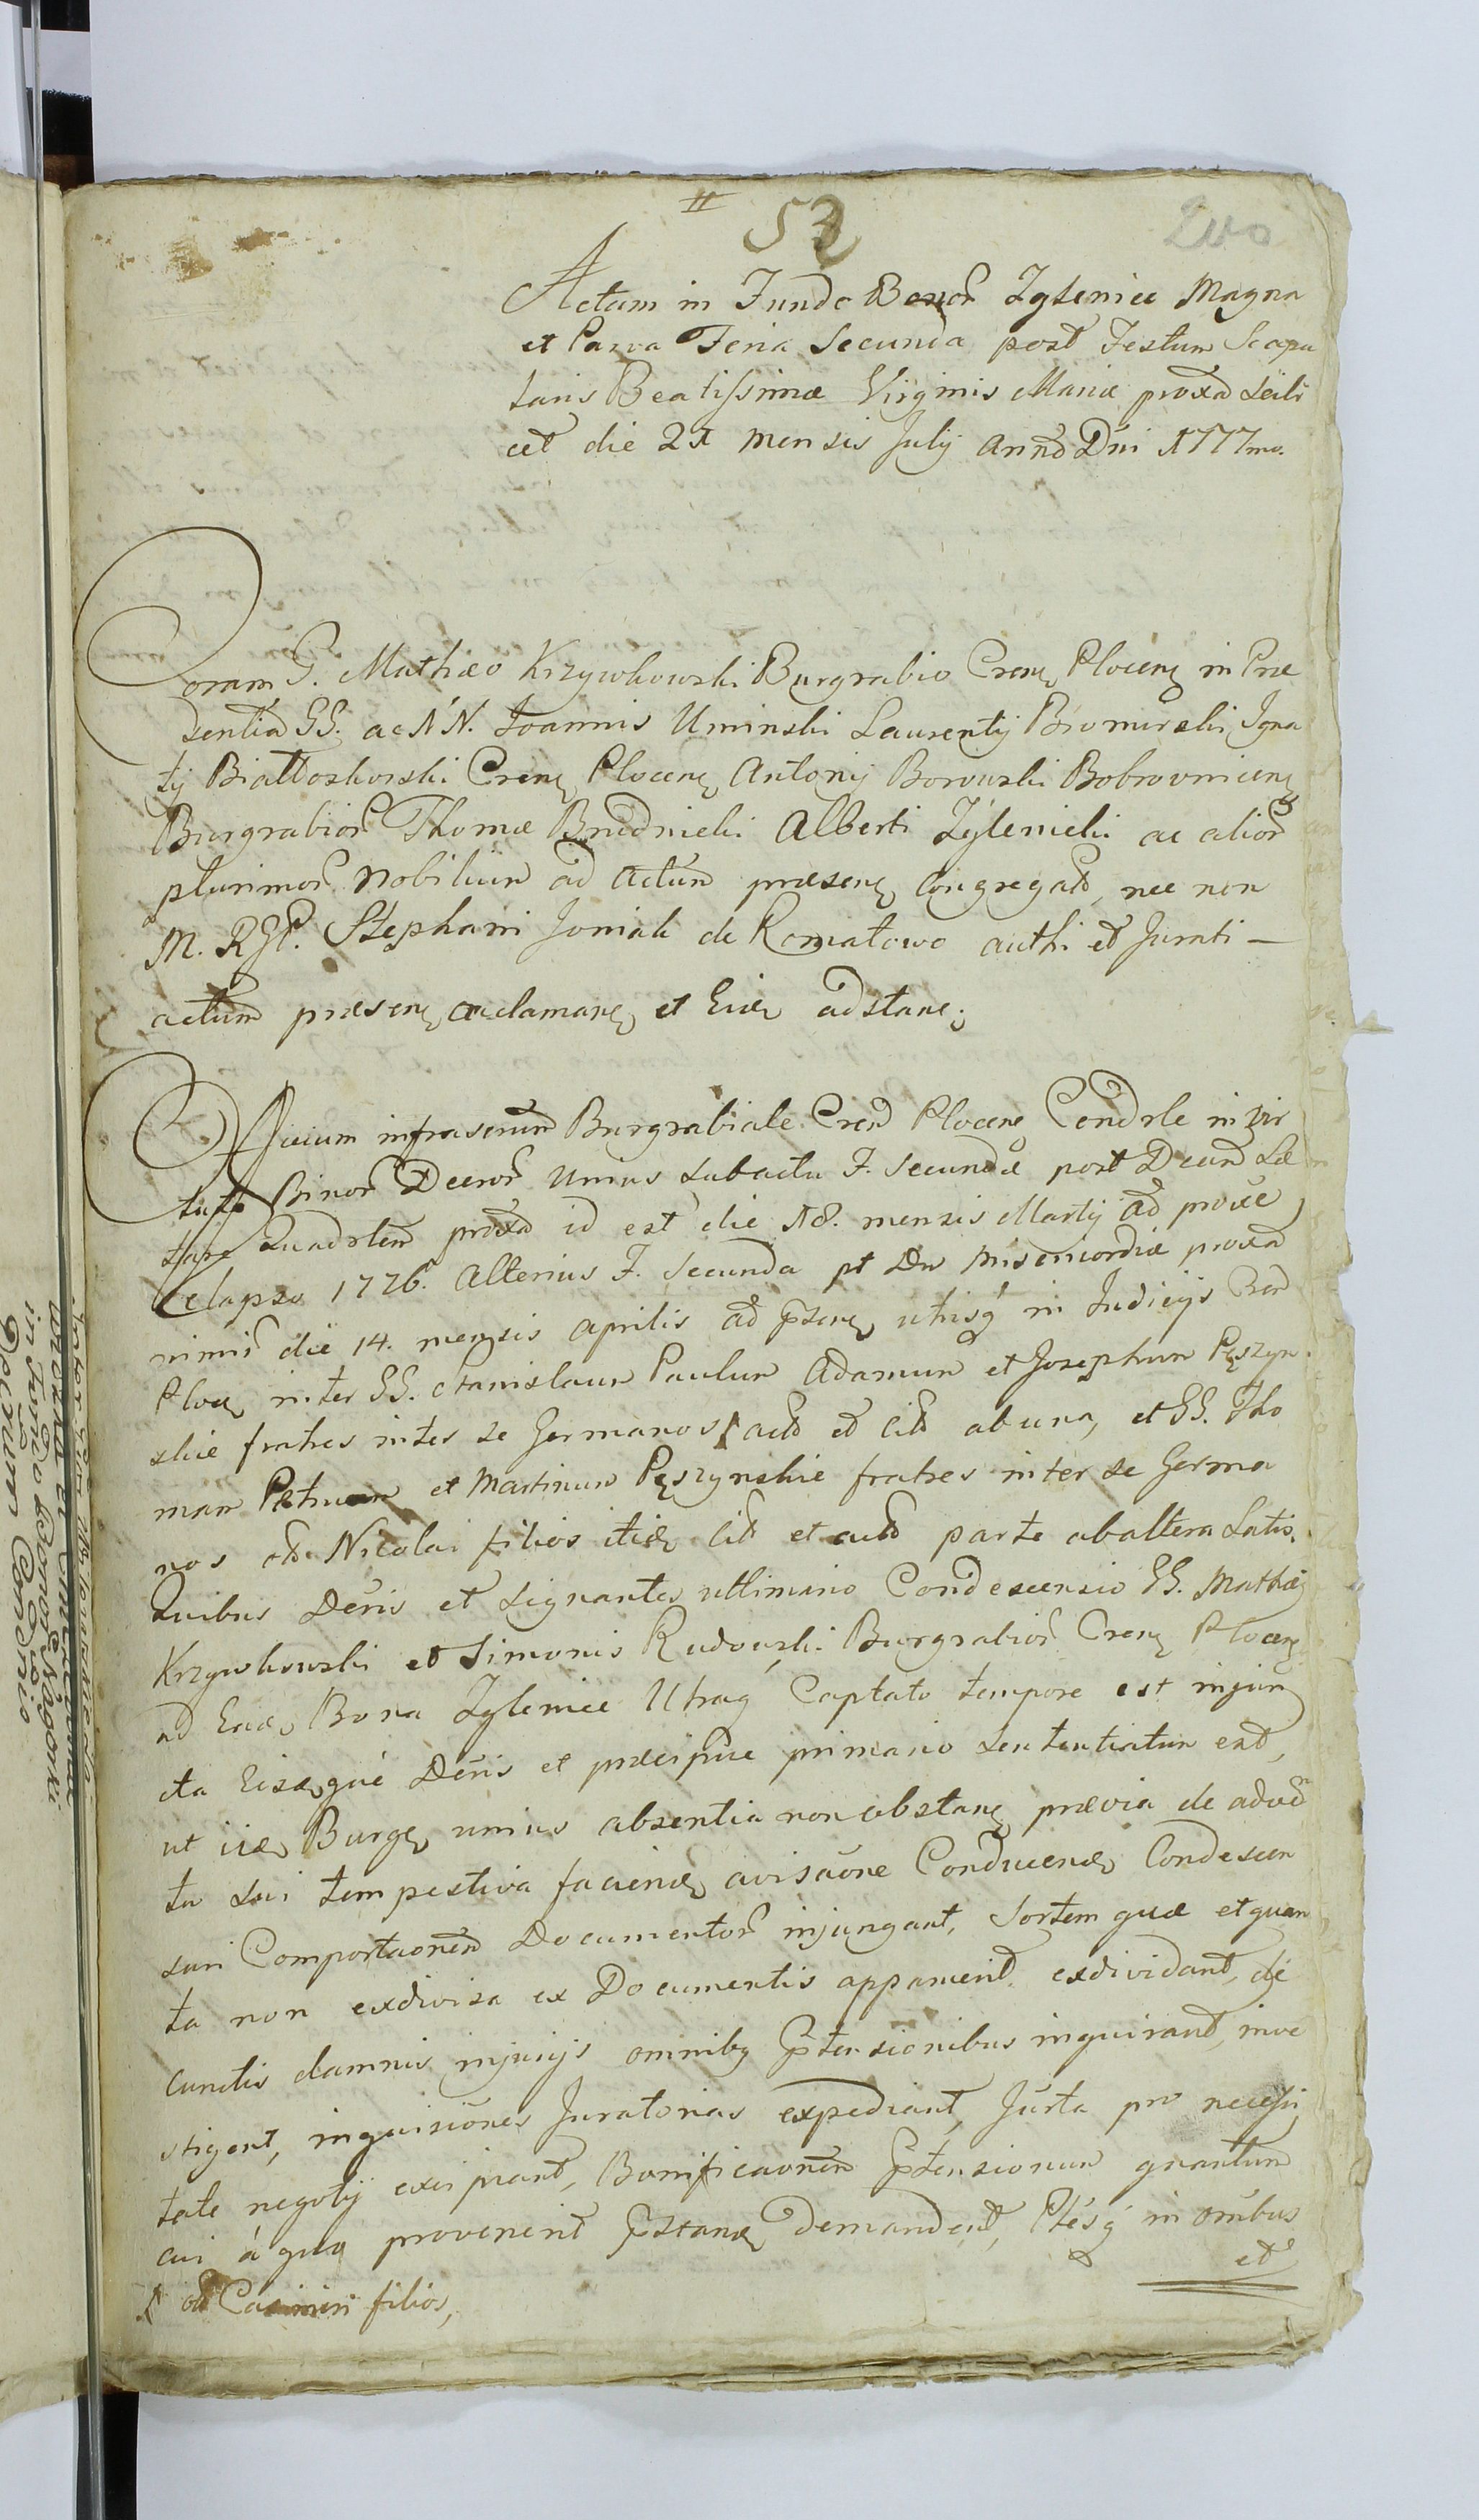 53
Actum in Fundo Bonor Zglenice Magna
et Parva Feria Secunda post Festum Scapu
laris Beatissimæ Virginis Mariæ proxa Scili
cet die 21 mensis Julij Anno Dni 1777mo.
Coram G. Mathæo Krzywkowski Burgrabio Cren Plocen in Præ
sentia GG. ac NN. Joannis Uminski Laurentij Bromirski Igna
tij Białłoskorski Cren Plocen Antonij Borowski Bobrovnicen
Burgrabior Thomæ Brudnicki Alberti Zglenicki ac alior
plurimor Nobilium ad Actum præsen congregat, nec non
M. RGP. Stephani Joniak de Romatowo auth. et Jurati —
actum præsen acclaman et Eid adstan;
Officium infrascrum Burgrabiale Cren Plocen Condrle in vir
tute Binor Decror Unius sub actu F. Secunda post Dcam Læ
tare Quadrlem proxa id est die 18. mensis Martij Ad proxe
elapso 1776. Alterius F. Secunda pt Dn Misericordiæ proxa
nimir die 14. mensis Aprilis ad pnsen utrisq in Judicijs Cren
Ploce inter GG. Stanislaum Paulum Adamum et Josephum Pęszyn
skie fratres inter se Germanos act et cit ab una, et GG. Tho
mam Petrum et Martinum Pęszynskie fratres inter se Germa
nos ol. Nicolai filios itid cit et act parte ab altera Latis.
Quibus Decris et signanter ultimario Condescensio GG. Mathæi
Krzywkowski et Simonis Rudowski Burgrabior Cren Plocen
ad Ead Bona Zglenice Utraq Captato tempore est injun
cta Eisdque Decris et præcipue primario sententiatum est,
ut iid Burg unius absentia non obstan prævia de adven
tu sui tempestiva faciend avisaone Conducend Condescen
suri Comportaonem Documentor injungant, Sortem quæ et quan
ta non exdivisa ex Documentis apparuerit exdividant, de
cunctis damnis injurijs omnibq Ptensionibus inquirant, inve
stigent, inquisiones Juratorias expediant, Jurta pro necessi
tate negotij excipiant, Bonificaonem Ptensionum quantum
cui à quo provenerit Pstand demandent, Ptesq in omibus
et
ol Casimiri filios,
in Fundo Bonor Nagorki